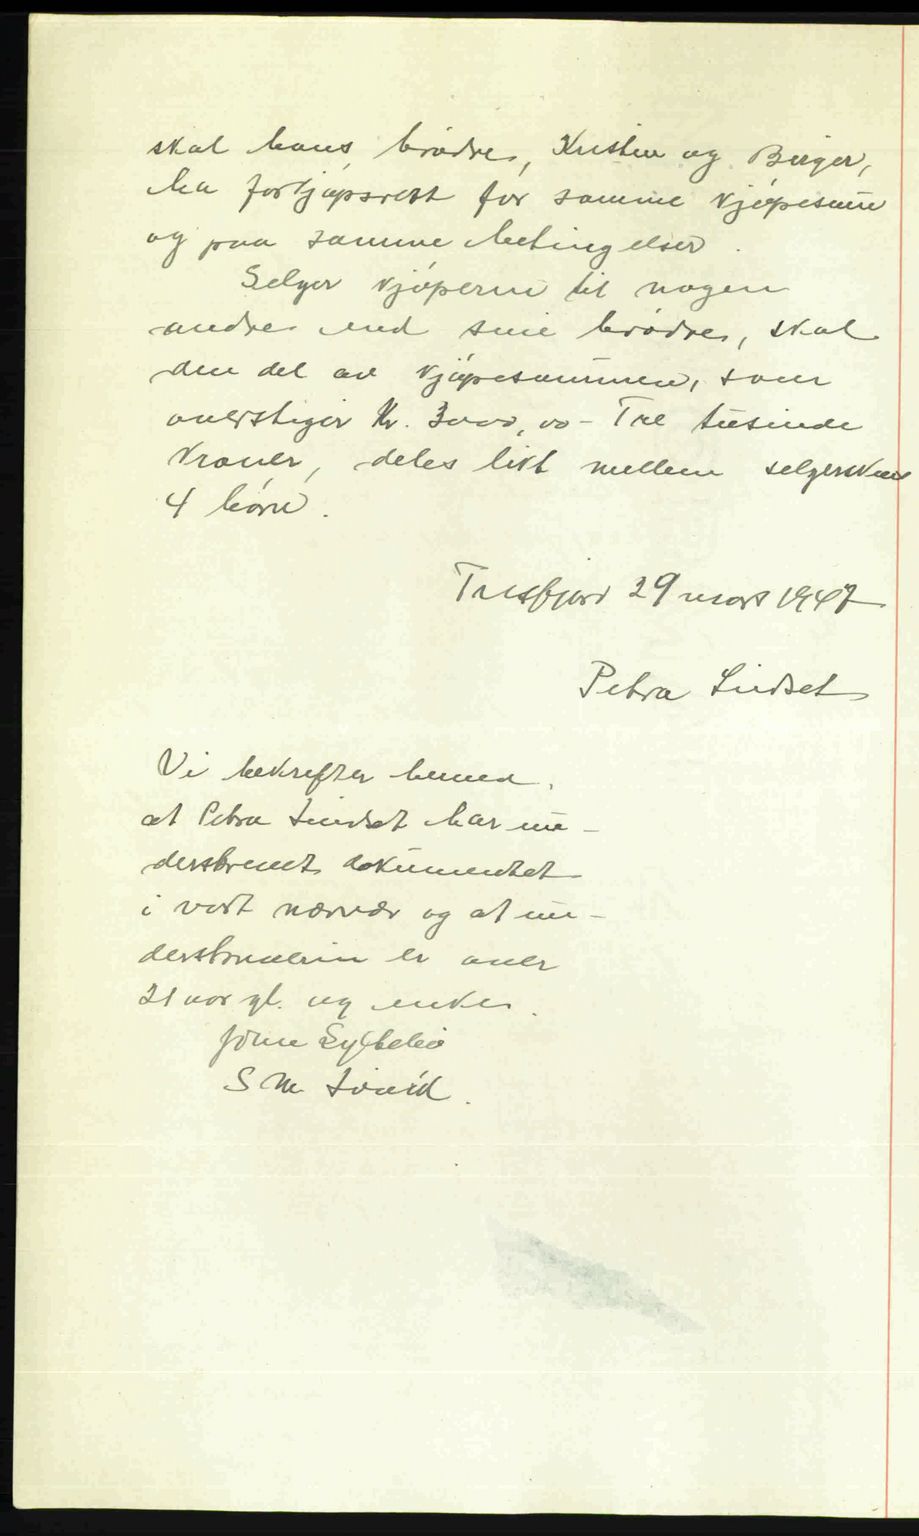 skal hans brødre, Kristen og Birger,
ha forkjøpsrett for samme kjøpesum
og paa samme betingelser.
Selger kjøperen til nogen
andre end sine brødre, skal
den del av kjøpesummen, som
overstiger Kr. 3000,00 - Tre tusinde
Kroner, deles likt mellem selgerskens
4 børn.
Tresfjord 29 mars 1947
Petra Lindset
Vi bekrefter herved,
at Petra Lindset har un-
derskrevet dokumentet
i vort nærvær og at un-
derskriverin er over
21 aar gl. og enke.
S M